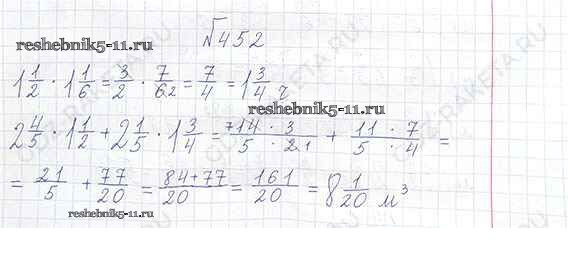 №452
reshebnik5-11.ru
1 1/2 · 1 1/6 = 3/2 · 7/6 2 = 7/4 = 1 3/4 ч
reshebnik5-11.ru
2 4/5 · 1 1/2 + 2 1/5 · 1 3/4 = 7 14 · 3 / 5 · 2 1 + 11 · 7 / 5 · 4 =
= 21/5 + 77/20 = 84+77/20 = 161/20 = 8 1/20 м³
reshebnik5-11.ru